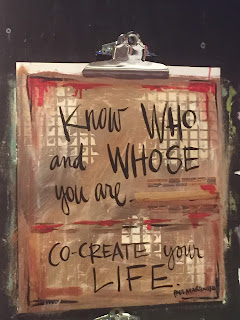 Know WHO
and WHOSE
you are.
CO-CREATE your
LIFE.